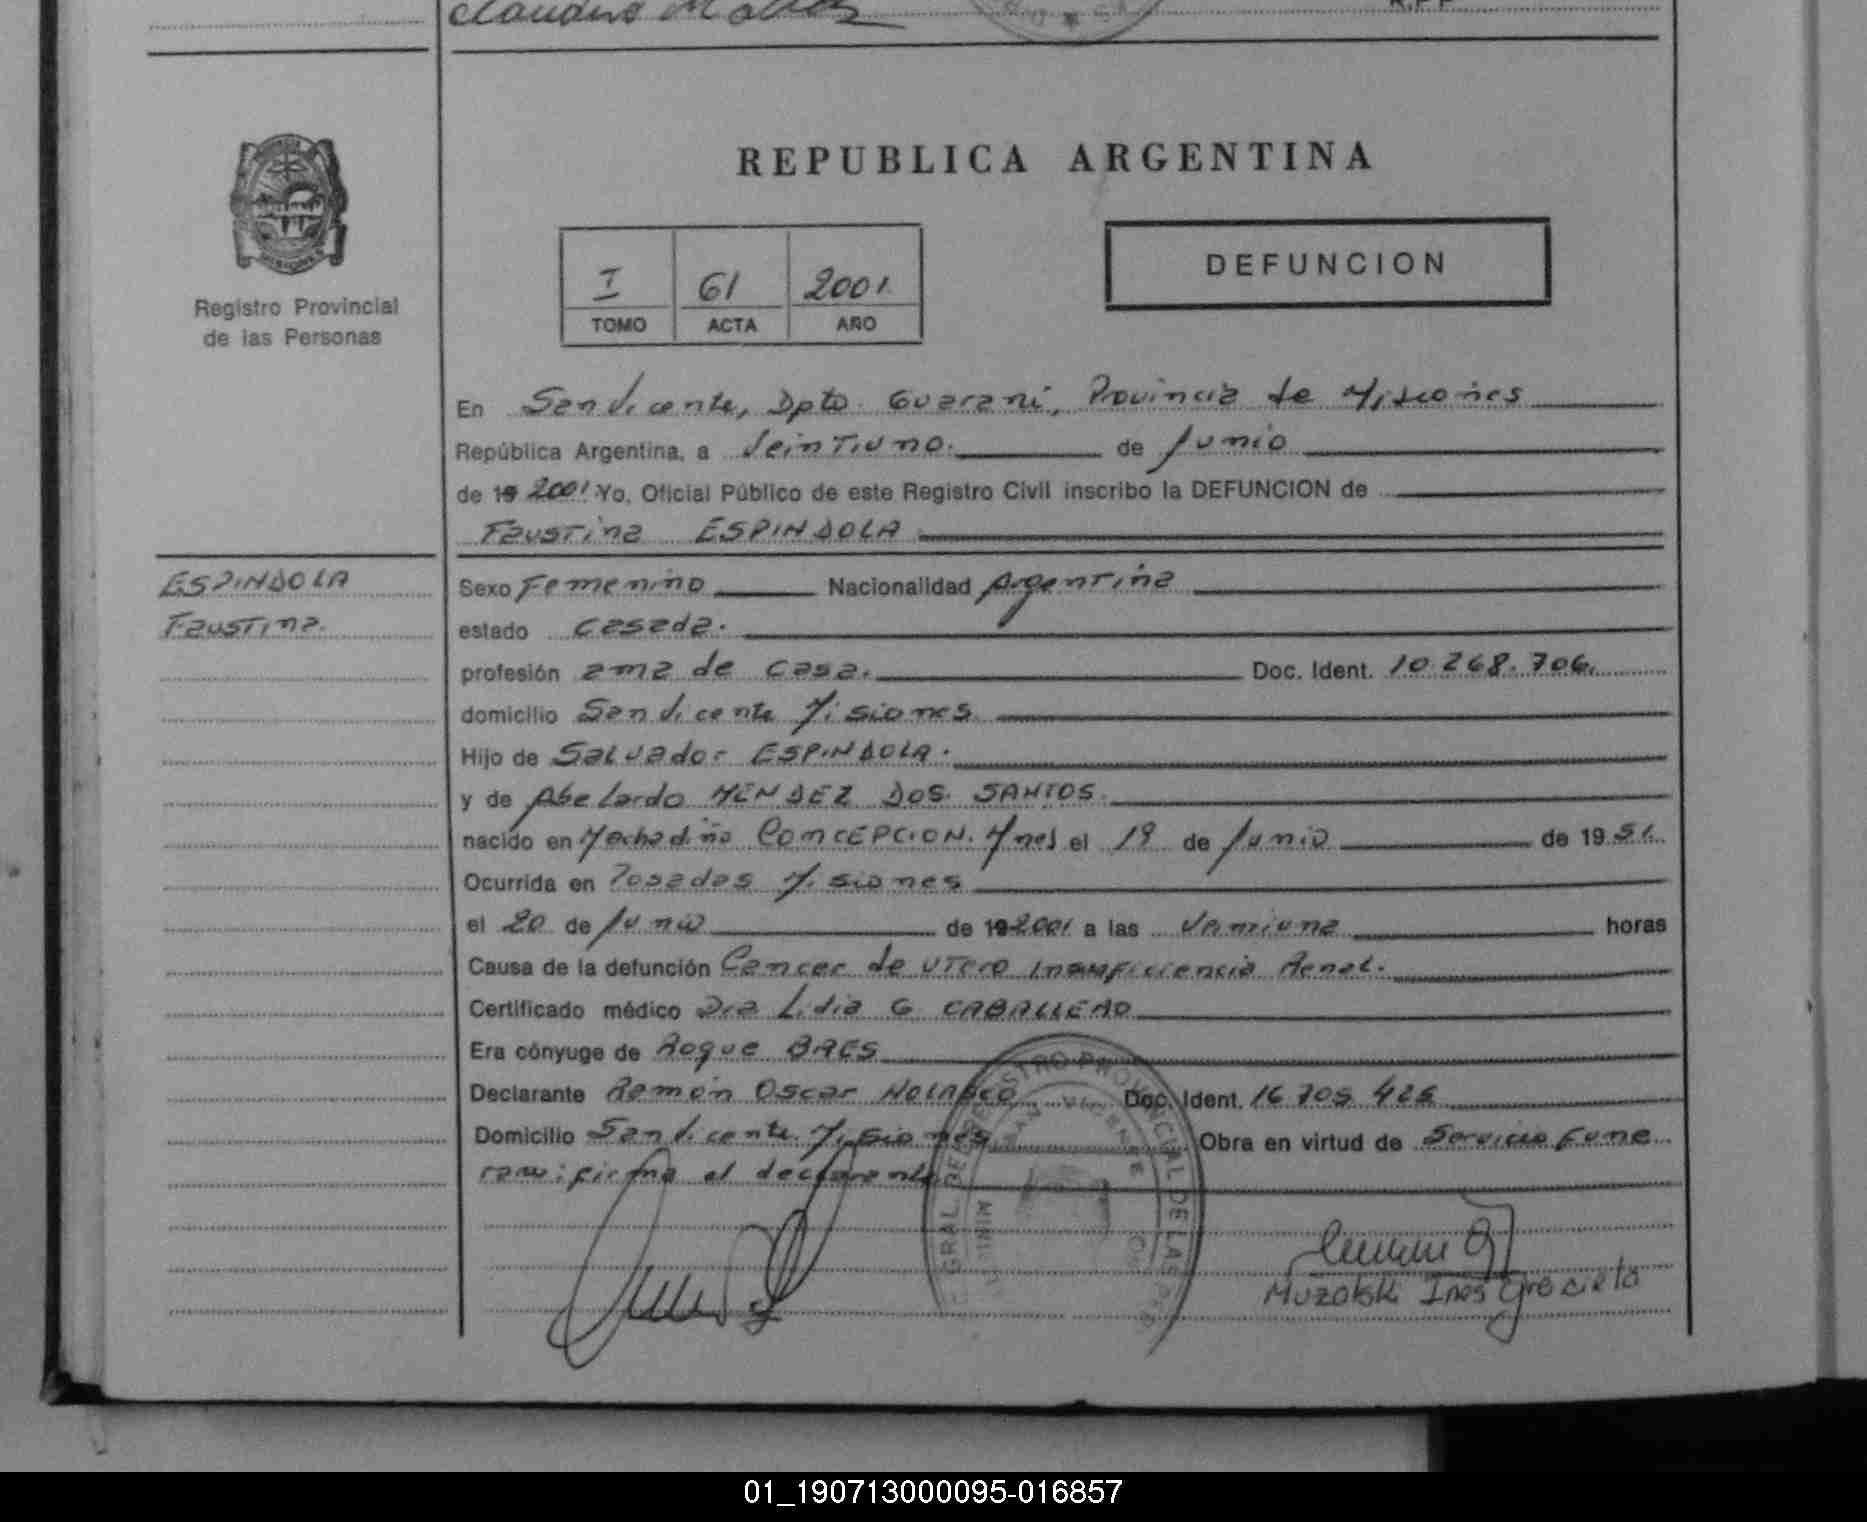 Claudino
R.P.P.
REPUBLICA ARGENTINA
Registro Provincial
de las Personas
I 61 2001
TOMO ACTA AÑO
DEFUNCION
En San Vicente, Dpto. Guarani, Provincia de Misiones
República Argentina, a Veintiuno. de Junio
de 19 2001 Yo, Oficial Público de este Registro Civil inscribo la DEFUNCION de
Faustina ESPINDOLA
ESPINDOLA
Faustina.
Sexo Femenino Nacionalidad Argentina
estado casada.
profesión ama de casa. Doc. Ident. 10.268.706.
domicilio San Vicente Misiones
Hijo de Salvador ESPINDOLA.
y de Abelardo MENDEZ DOS SANTOS.
nacido en Mechadiño CONCEPCION. Mnes el 19 de Junio de 1951.
Ocurrida en Posadas Misiones
el 20 de Junio de 19 2001 a las veniuna horas
Causa de la defunción Cancer de utero Insuficiencia Renal.
Certificado médico Dra Lidia G CABALLERO
Era cónyuge de Roque BAES
Declarante Ramón Oscar NOLASCO Doc. Ident. 16 705 426
Domicilio San Vicente Misiones Obra en virtud de Servicio Fune
rario; firma el declarante
GRAL DE REGISTRO PROVINCIAL DE LAS PER
SAN VICENTE
Muzolski Ines Graciela
01_190713000095-016857